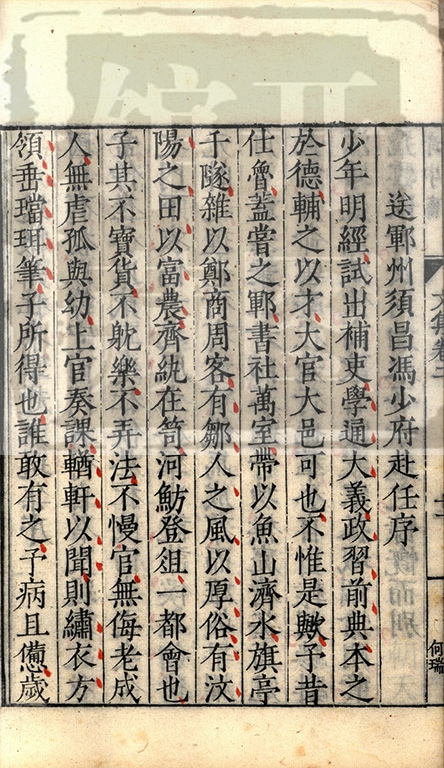 送鄆州須昌馮少府赴任序
少年明經試出補吏學通大義政習前典本之
於德輔之以才大官大邑可也不惟是歟予昔
仕魯蓋嘗之鄆書社萬室帶以魚山濟水旗亭
千隧雜以鄭商周客有鄒人之風以厚俗有汶
陽之田以富農齊紈在笥河魴登俎一都會也
子其不寶貨不躭樂不弄法不慢官無侮老成
人無虐孤與幼上官奏課輶軒以聞則繡衣方
領垂璫珥筆子所得也誰敢有之予病且憊歲
何瑞